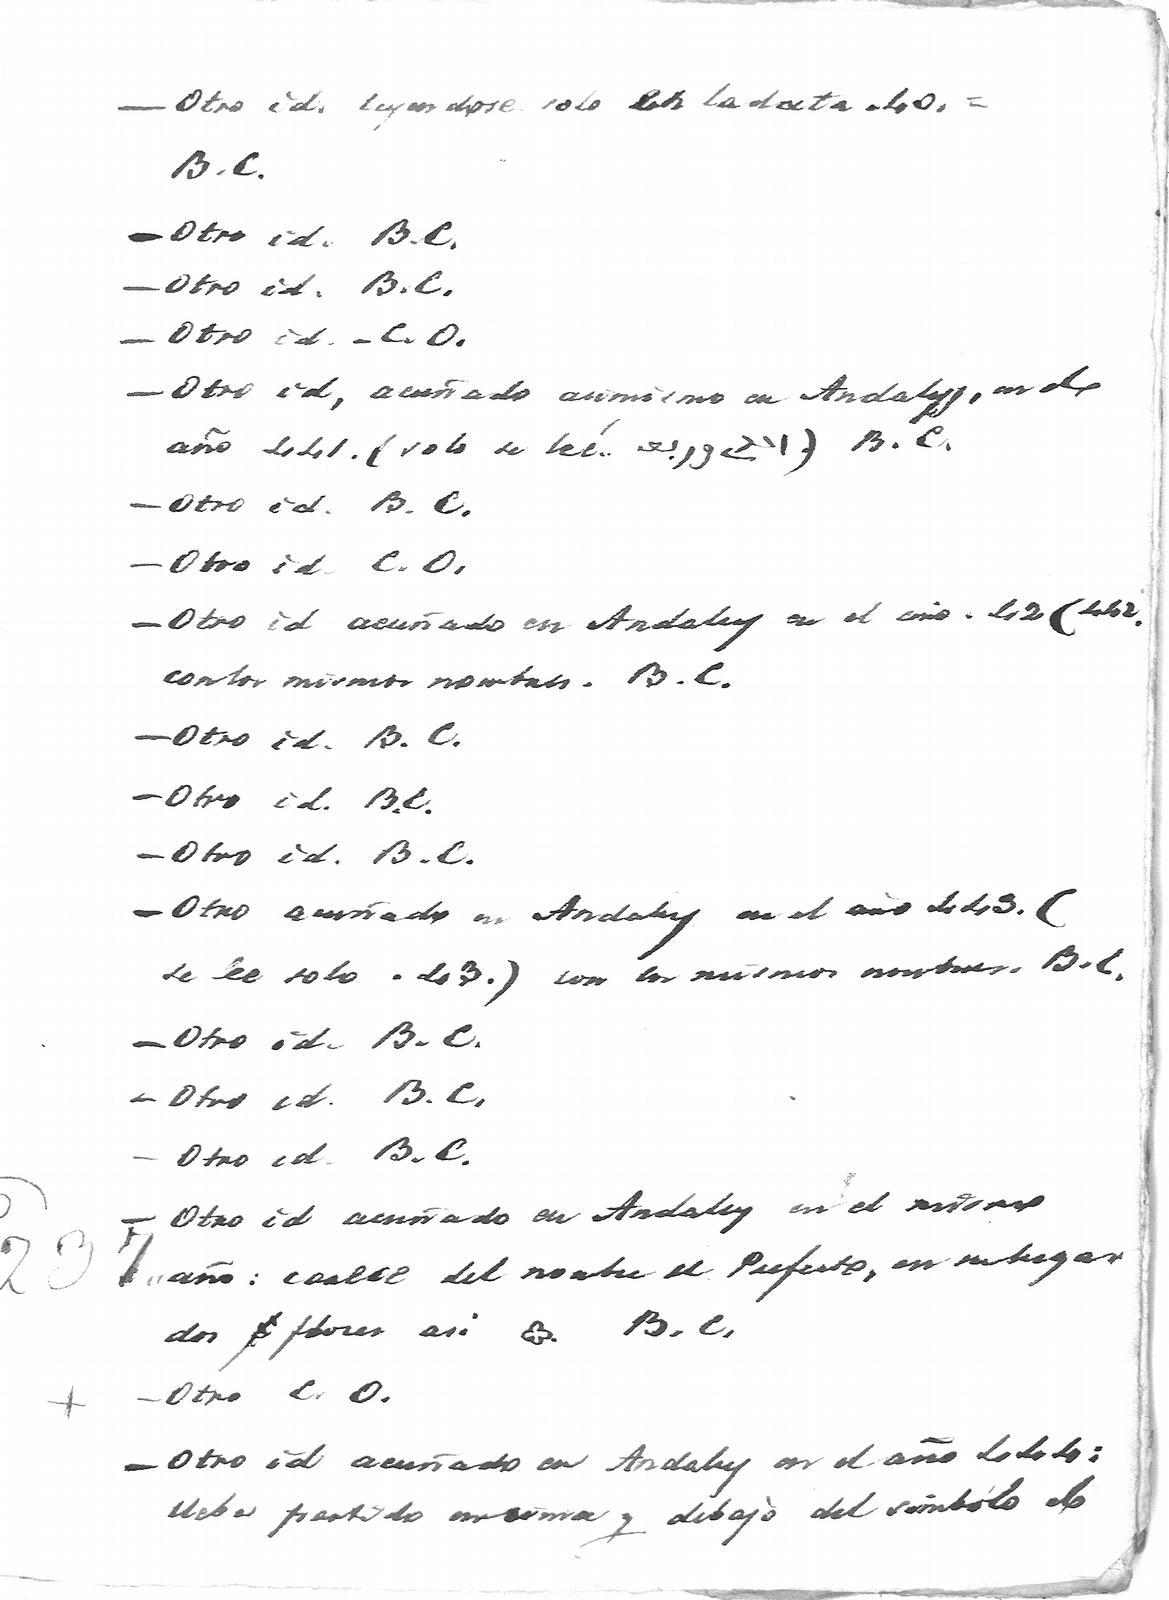 — Otro id. leyendose solo en la data .40. =
B.C.
— Otro id. B.C.
— Otro id. B.C.
— Otro id. - C.O.
— Otro id, acuñado asimismo en Andaluy, en el
año 441. (solo se lee ) B.C.
— Otro id. B.C.
— Otro id. C.O.
— Otro id acuñado en Andaluy en el año .42 (442.
con los mismos nombres. B.C.
— Otro id. B.C.
— Otro id. B.C.
— Otro id. B.C.
— Otro acuñado en Andaluy en el año 443. (
se lee solo .43.) con los mismos nombres. B.C.
— Otro id. B.C.
— Otro id. B.C.
— Otro id. B.C.
— Otro id acuñado en Andaluy en el mismo
237 año: carece del nombre el Prefecto, en su lugar
dos flores asi B.C.
+ — Otro C.O.
— Otro id acuñado en Andaluy en el año 444:
lleba partido encima y debajo del simbólo